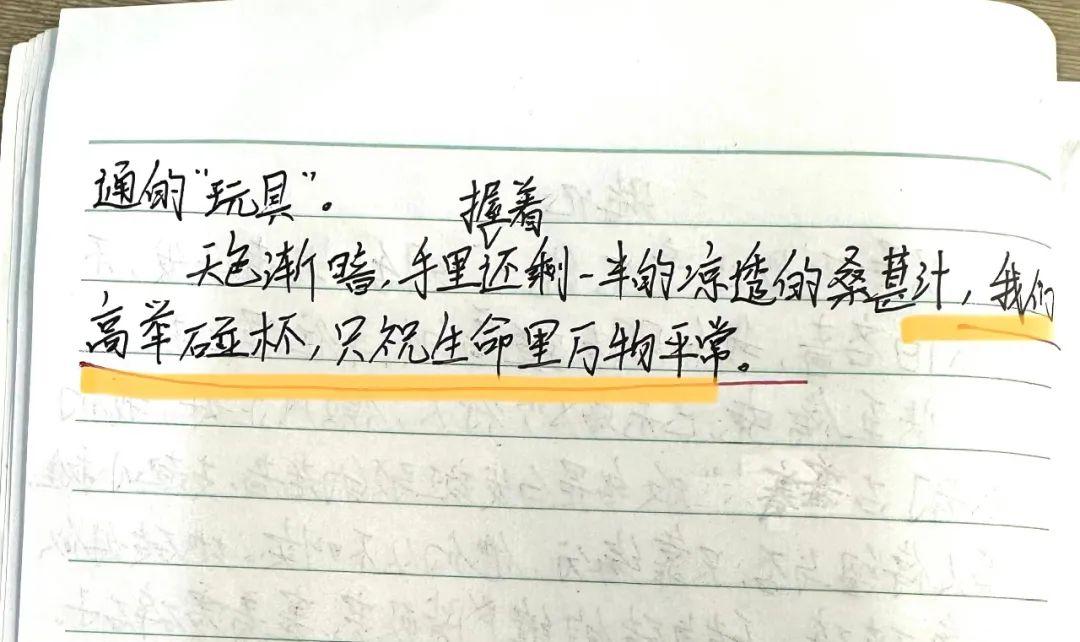 通的“玩具”。
握着
天色渐暗，手里还剩一半的凉透的桑葚汁，我们
高举碰杯，只祝生命里万物平常。